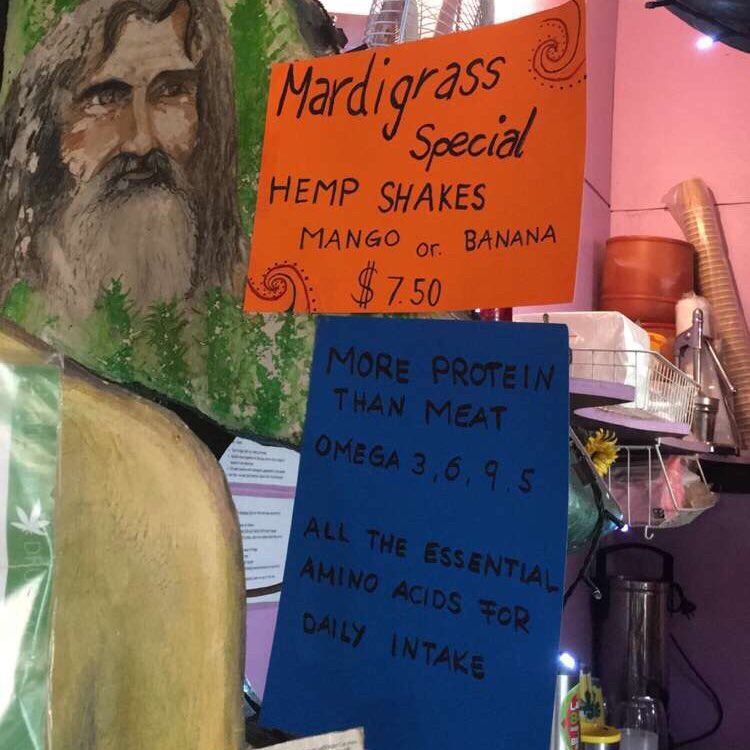 Mardigrass
Special
HEMP SHAKES
MANGO or BANANA
$7.50
MORE PROTEIN
THAN MEAT
OMEGA 3, 6, 9. 5
ALL THE ESSENTIAL
AMINO ACIDS FOR
DAILY INTAKE